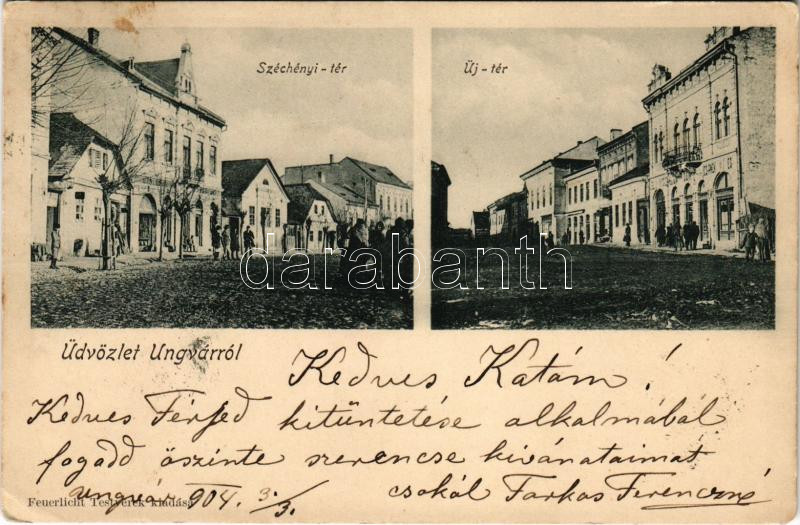 Széchényi-tér
Új-tér
darabanth
Üdvözlet Ungvárról
Kedves Katám!
Kedves Férjed kitüntetése alkalmából
fogadd őszinte szerencse kivánataimat
Ungvár 904. 3/3. csokol Farkas Ferenczné
Feuerlicht Testvérek kiadása